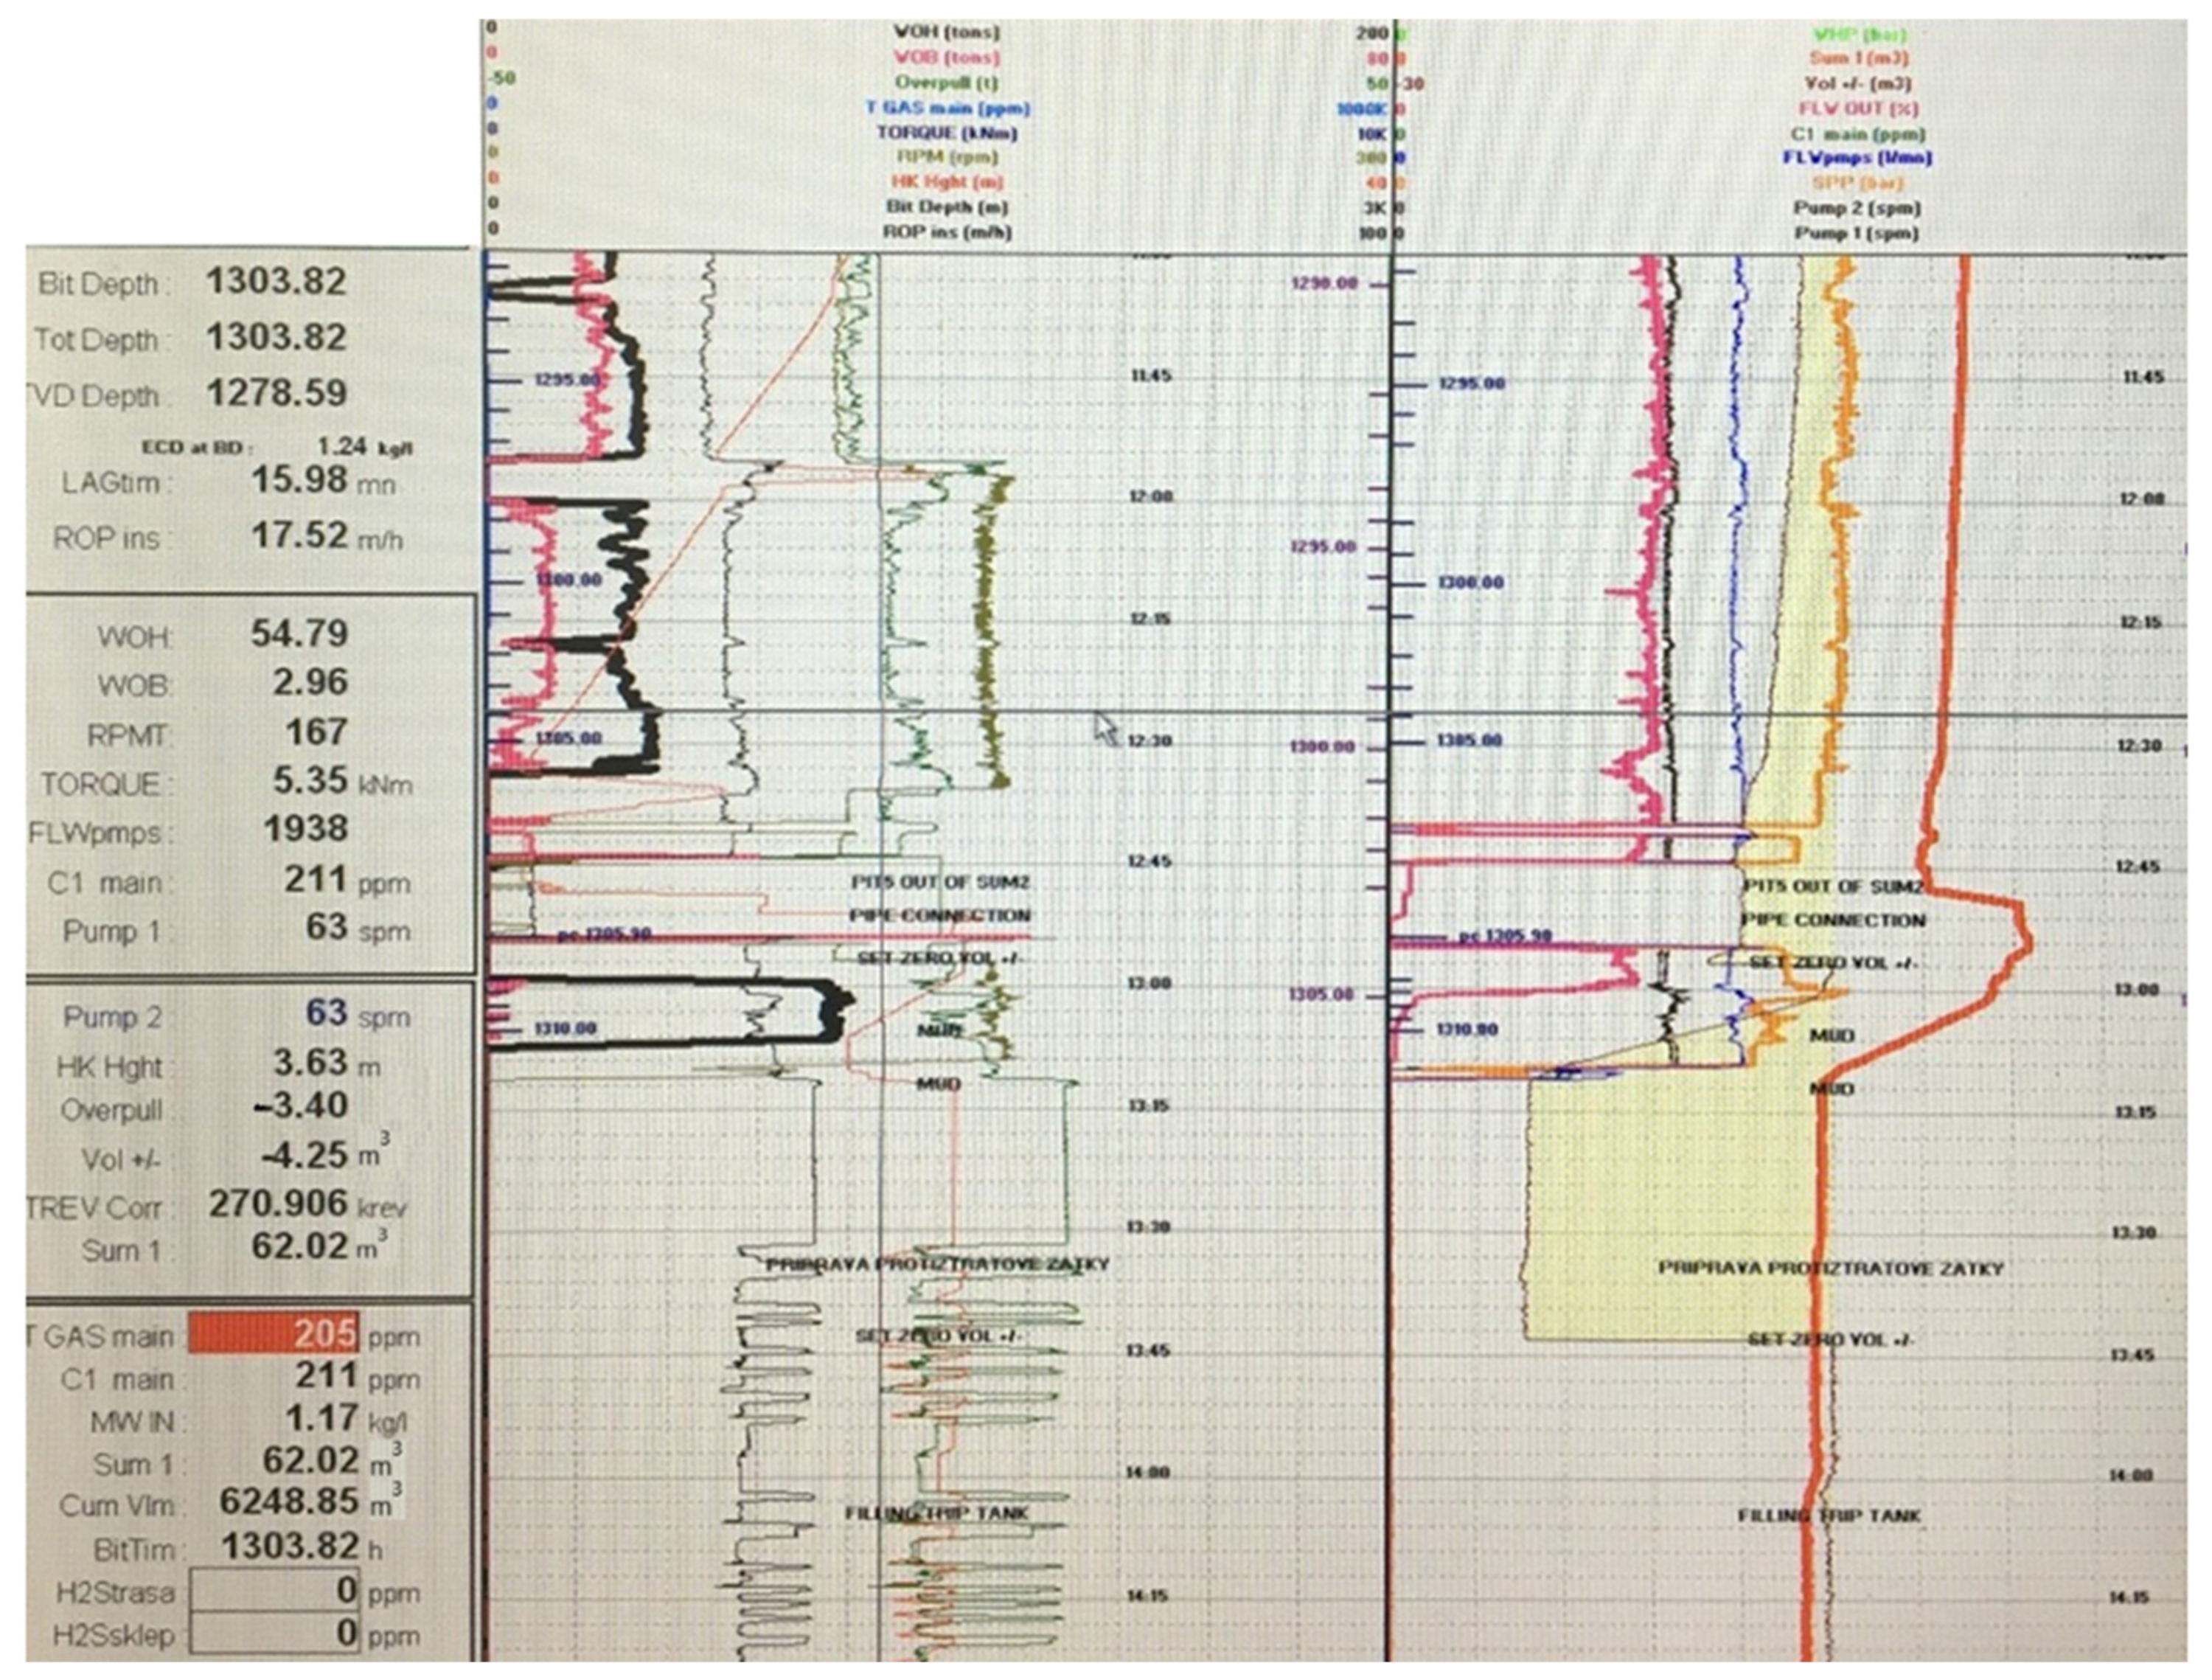 0 WOH (tons) 200
0 WOB (tons) 80
-50 Overpull (t) 50
0 T GAS main (ppm) 1000K
0 TORQUE (kNm) 10K
0 RPM (rpm) 300
0 HK Hght (m) 40
0 Bit Depth (m) 3K
0 ROP ins (m/h) 100
0 WHP (bar)
0 Sum 1 (m3)
-30 Vol +/- (m3)
0 FLW OUT (%)
0 C1 main (ppm)
0 FLWpmps (l/mn)
0 SPP (bar)
0 Pump 2 (spm)
0 Pump 1 (spm)
Bit Depth : 1303.82
Tot Depth : 1303.82
TVD Depth : 1278.59
ECD at BD : 1.24 kg/l
LAGtim : 15.98 mn
ROP ins : 17.52 m/h
WOH: 54.79
WOB: 2.96
RPMT: 167
TORQUE : 5.35 kNm
FLWpmps : 1938
C1 main : 211 ppm
Pump 1 : 63 spm
Pump 2 : 63 spm
HK Hght : 3.63 m
Overpull : -3.40
Vol +/- : -4.25 m3
TREV Corr : 270.906 krev
Sum 1 : 62.02 m3
T GAS main : 205 ppm
C1 main : 211 ppm
MW IN : 1.17 kg/l
Sum 1 : 62.02 m3
Cum Vlm : 6248.85 m3
BitTim : 1303.82 h
H2Strasa 0 ppm
H2Ssklep 0 ppm
1295.00
1300.00
1305.00
pc 1305.90
1310.00
11:45
12:00
12:15
12:30
12:45
PIT5 OUT OF SUM2
PIPE CONNECTION
SET ZERO VOL +/-
13:00
MUD
MUD
13:15
13:30
PRIPRAVA PROTIZTRATOVE ZATKY
SET ZERO VOL +/-
13:45
14:00
FILLING TRIP TANK
14:15
1290.00
1295.00
1300.00
1305.00
1295.00
1300.00
1305.00
pc 1305.90
1310.00
11:45
12:00
12:15
12:30
12:45
PIT5 OUT OF SUM2
PIPE CONNECTION
SET ZERO VOL +/-
13:00
MUD
MUD
13:15
13:30
PRIPRAVA PROTIZTRATOVE ZATKY
SET ZERO VOL +/-
13:45
14:00
FILLING TRIP TANK
14:15